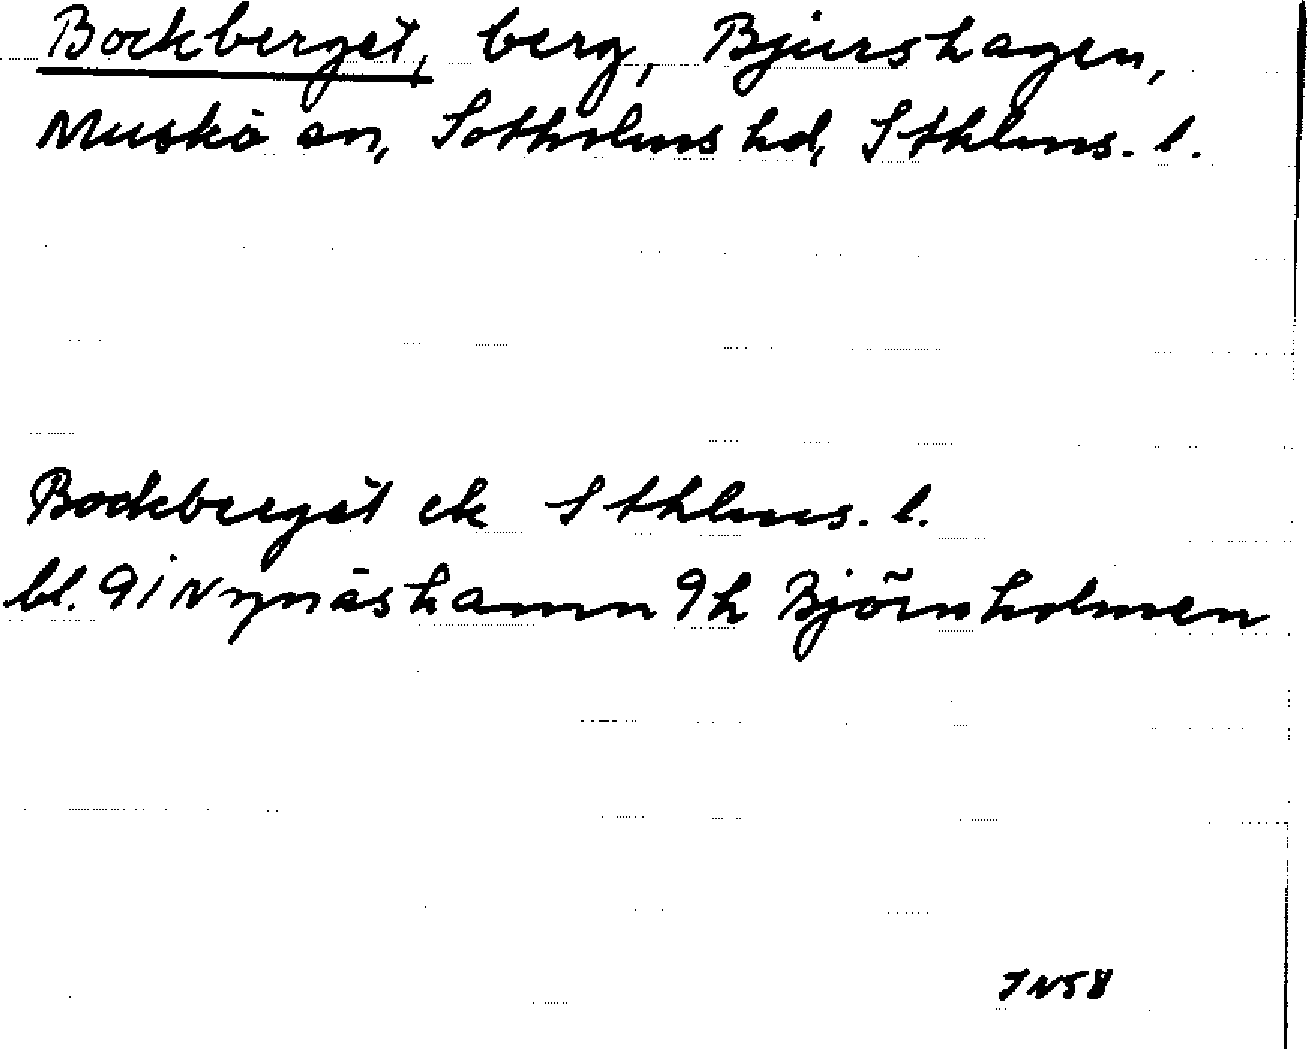 Bockberget, berg, Bjurshagen,
Muskö sn, Sotholms hd, Sthlms. l.
Bockberget ek Sthlms. l.
bl. 9i Nynäshamn 9h Björnholmen
JN58